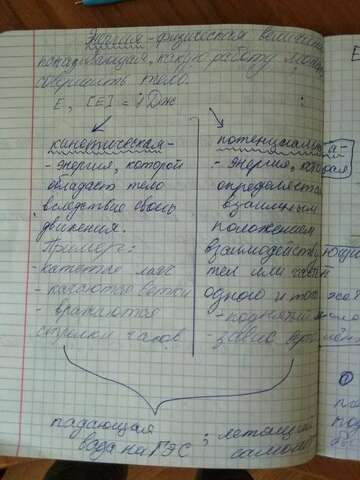 Энергия - физическая величина
показывающая, какую работу может
совершить тело.
E, [E] = 1 Дж
кинетическая-
- энергия, которой
обладает тело
вследствие своего
движения.
Примеры:
- катается
- качаются ветки
- вращаются
стрелки часов
потенциальная-
- энергия, которая
определяется
взаимным
положением
взаимодействующих
тел или частей
одного и того же
- поднятый
падающая
вода на ГЭС
; летящий
самолёт